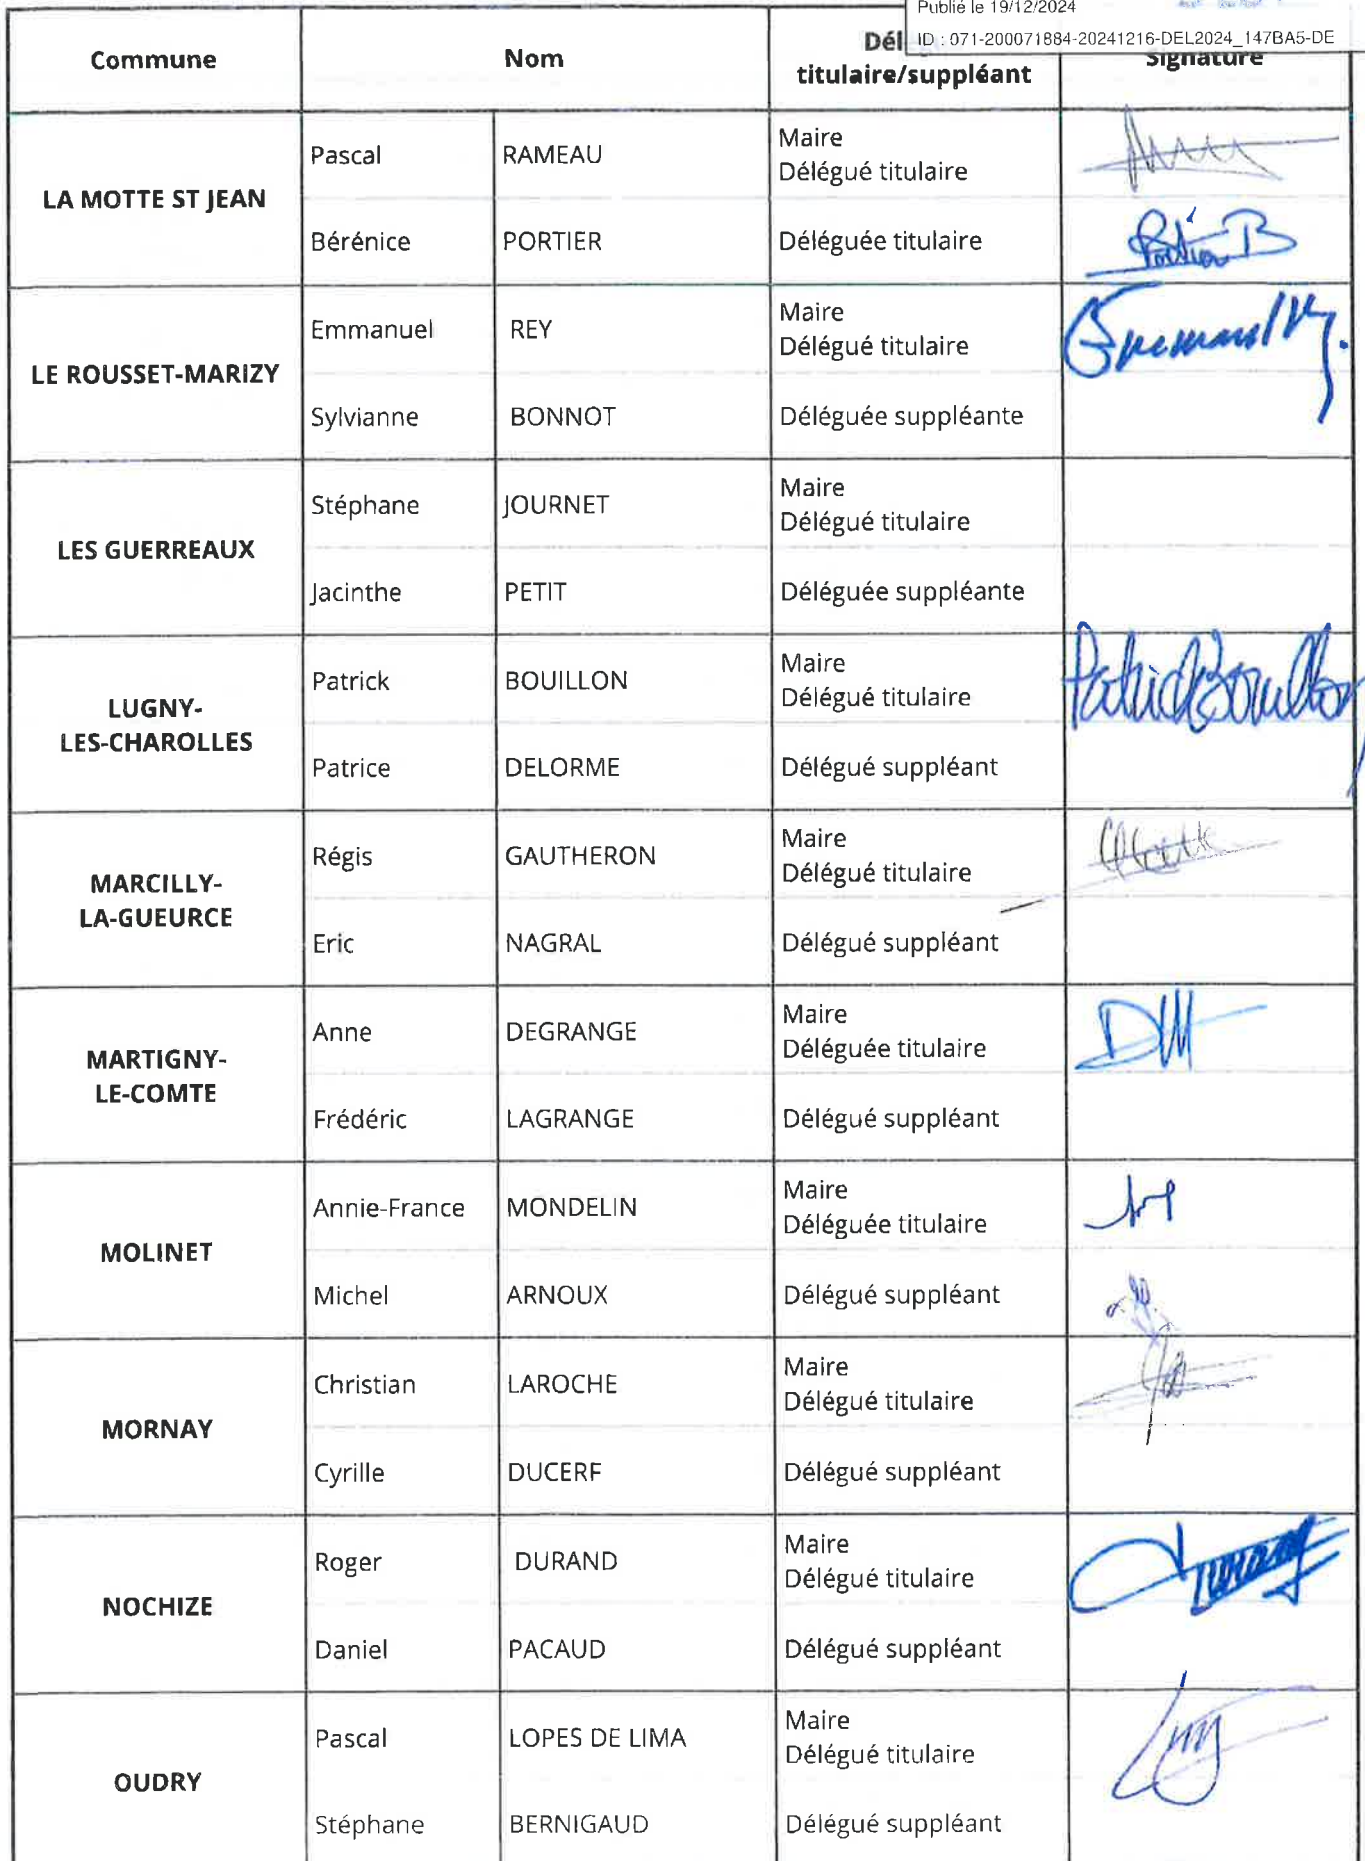 Publié le 19/12/2024
ID : 071-200071884-20241216-DEL2024_147BA5-DE
Commune
Nom
Dél
titulaire/suppléant
Signature
LA MOTTE ST JEAN
Pascal RAMEAU
Maire
Délégué titulaire
Bérénice PORTIER Déléguée titulaire
Portier B
LE ROUSSET-MARIZY
Emmanuel REY
Maire
Délégué titulaire
Sylvianne BONNOT Déléguée suppléante
LES GUERREAUX
Stéphane JOURNET
Maire
Délégué titulaire
Jacinthe PETIT Déléguée suppléante
LUGNY-
LES-CHAROLLES
Patrick BOUILLON
Maire
Délégué titulaire
Patrick Bouillon
Patrice DELORME Délégué suppléant
MARCILLY-
LA-GUEURCE
Régis GAUTHERON
Maire
Délégué titulaire
Eric NAGRAL Délégué suppléant
MARTIGNY-
LE-COMTE
Anne DEGRANGE
Maire
Déléguée titulaire
Frédéric LAGRANGE Délégué suppléant
MOLINET
Annie-France MONDELIN
Maire
Déléguée titulaire
Michel ARNOUX Délégué suppléant
MORNAY
Christian LAROCHE
Maire
Délégué titulaire
Cyrille DUCERF Délégué suppléant
NOCHIZE
Roger DURAND
Maire
Délégué titulaire
Daniel PACAUD Délégué suppléant
OUDRY
Pascal LOPES DE LIMA
Maire
Délégué titulaire
Stéphane BERNIGAUD Délégué suppléant